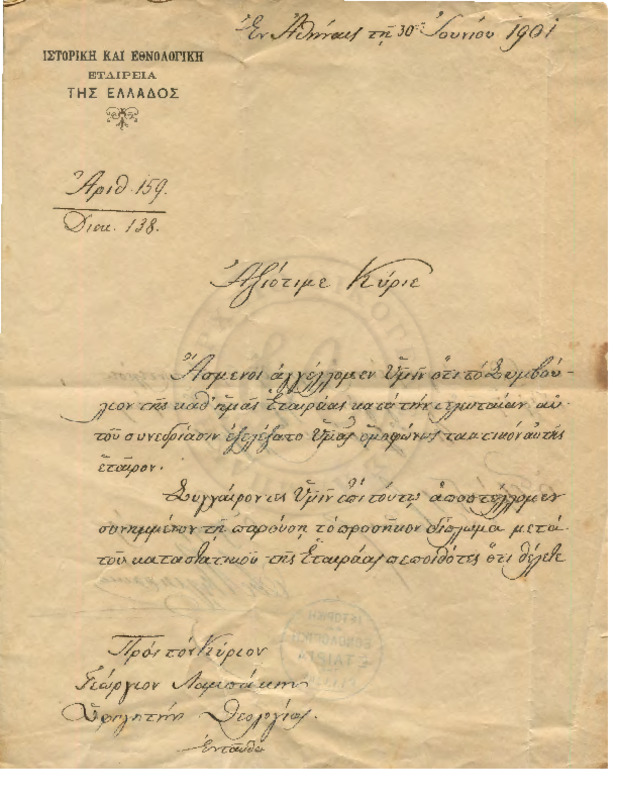 Ἐν Ἀθήναις τῇ 30ῃ Ἰουνίου 1901
ΙΣΤΟΡΙΚΗ ΚΑΙ ΕΘΝΟΛΟΓΙΚΗ
ΕΤΑΙΡΕΙΑ
ΤΗΣ ΕΛΛΑΔΟΣ
Ἀριθ. 159.
Διεκ. 138.
Ἀξιότιμε Κύριε
Ἄσμενοι ἀγγέλλομεν Ὑμῖν ὅτι τὸ Συμβού-
λιον τῆς καθ' ἡμᾶς Ἑταιρείας κατὰ τὴν τελευταίαν αὐ-
τοῦ συνεδρίασιν ἐξελέξατο Ὑμᾶς ὁμοφώνως τακτικὸν αὐτῆς
ἑταῖρον.
Συγχαίροντες Ὑμῖν ἐπὶ τούτῳ ἀποστέλλομεν
συνημμένον τῇ παρούσῃ τὸ προσῆκον δίπλωμα μετὰ
τοῦ καταστατικοῦ τῆς Ἑταιρείας πεποιθότες ὅτι θέλετε
Πρὸς τὸν Κύριον
Γεώργιον Λαμπάκην
Ὑφηγητὴν Θεολογίας.
Ἐνταῦθα